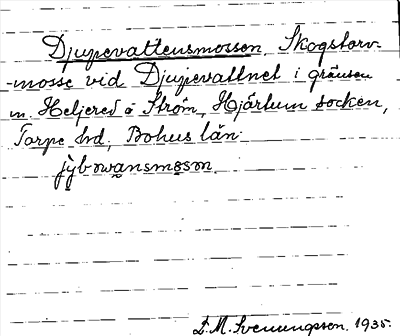 Djupevattensmossen, Skogstorv-
-mosse vid Djupevattnet i gränsen
m. Heljered o Ström, Hjärtum socken,
Torpe hd, Bohus län.
jỳbɷwansmɷsɷn
D.M. Svenungsson, 1935.